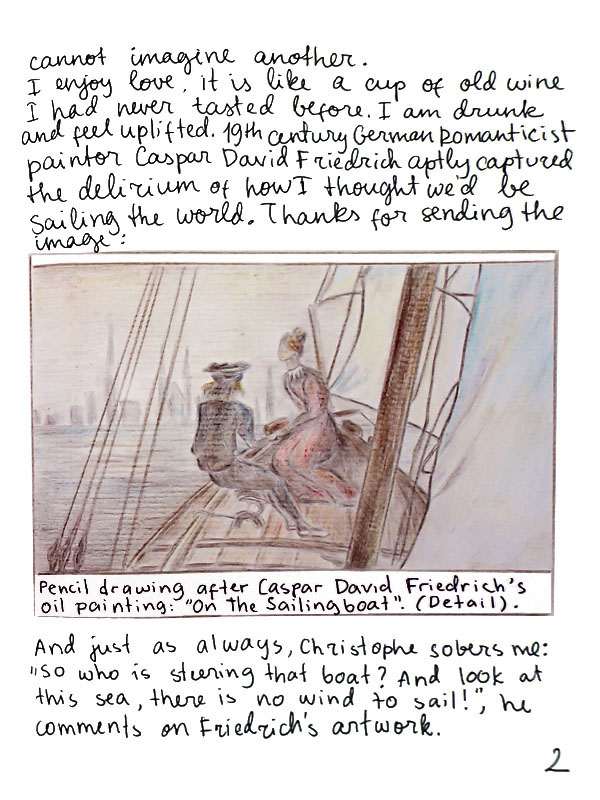 cannot imagine another.
I enjoy love, it is like a cup of old wine
I had never tasted before. I am drunk
and feel uplifted. 19th century German Romanticist
paintor Caspar David Friedrich aptly captured
the delirium of how I thought we'd be
sailing the world. Thanks for sending the
image:
Pencil drawing after Caspar David Friedrich's
oil painting: "On the Sailingboat". (Detail).
And just as always, Christophe sobers me:
"So who is steering that boat? And look at
this sea, there is no wind to sail!", he
comments on Friedrich's artwork.
2